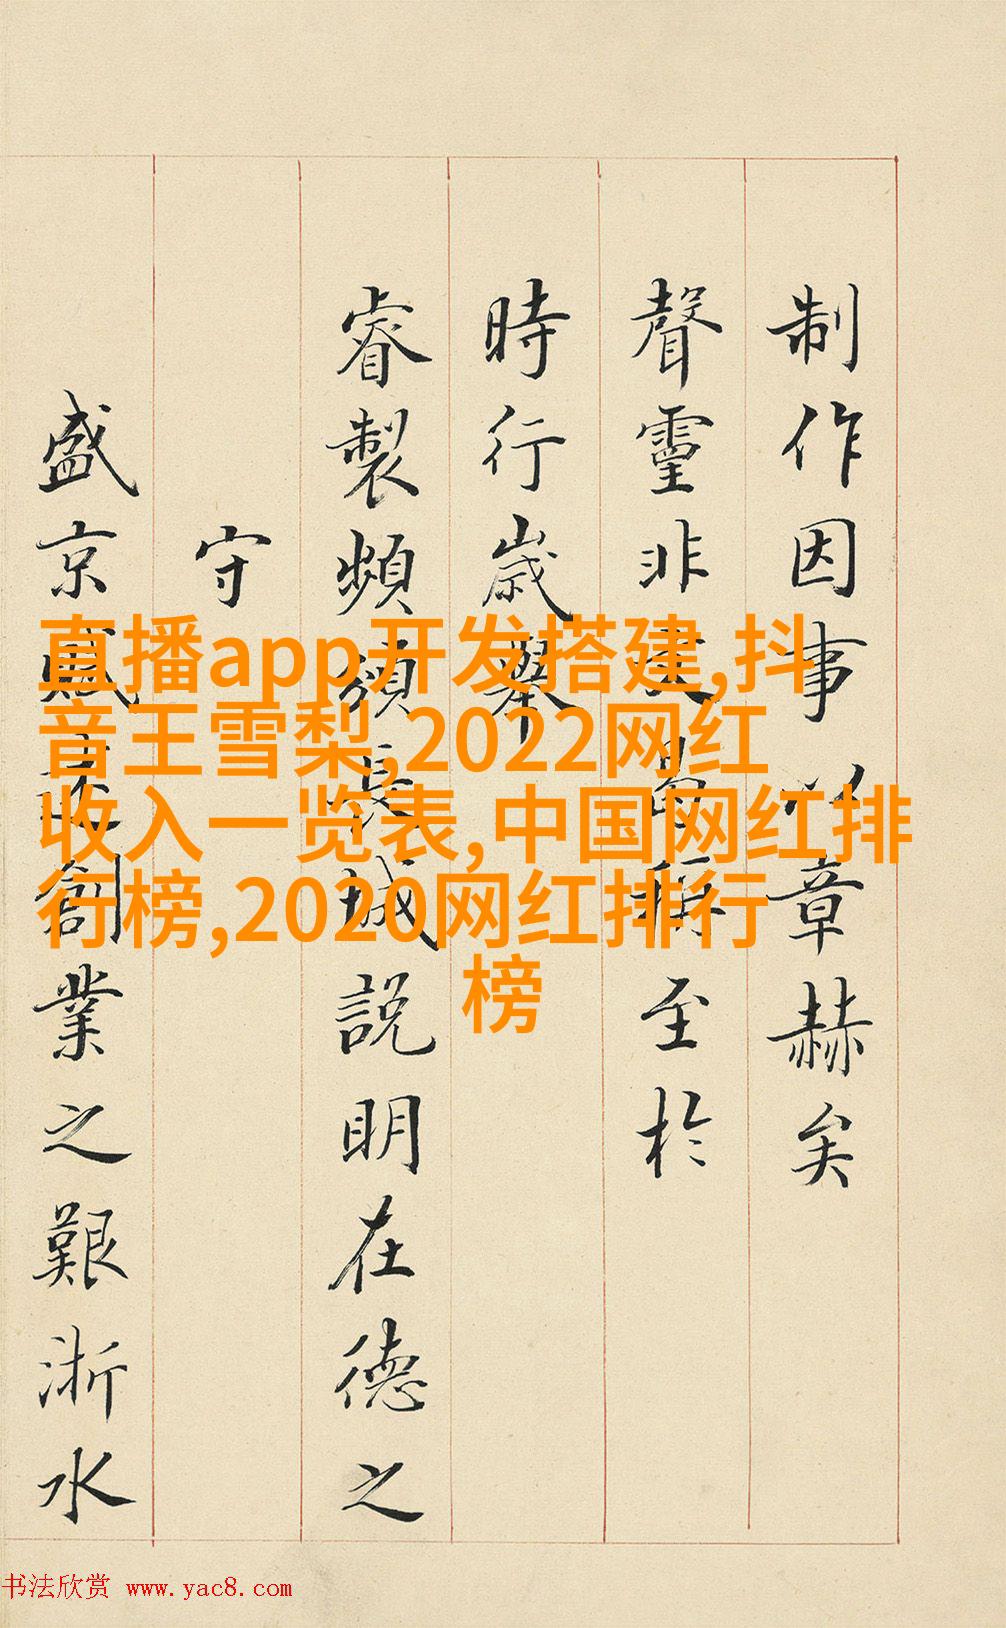 制作因事以章赫矣
聲靈非
至於
時行歲舉
睿製頻頒長城説明在德之
守
盛京賦
創業之艱浙水
直播app开发搭建,抖
音王雪梨,2022网红
收入一览表,中国网红排
行榜,2020网红排行
榜
书法欣赏 www.yac8.com